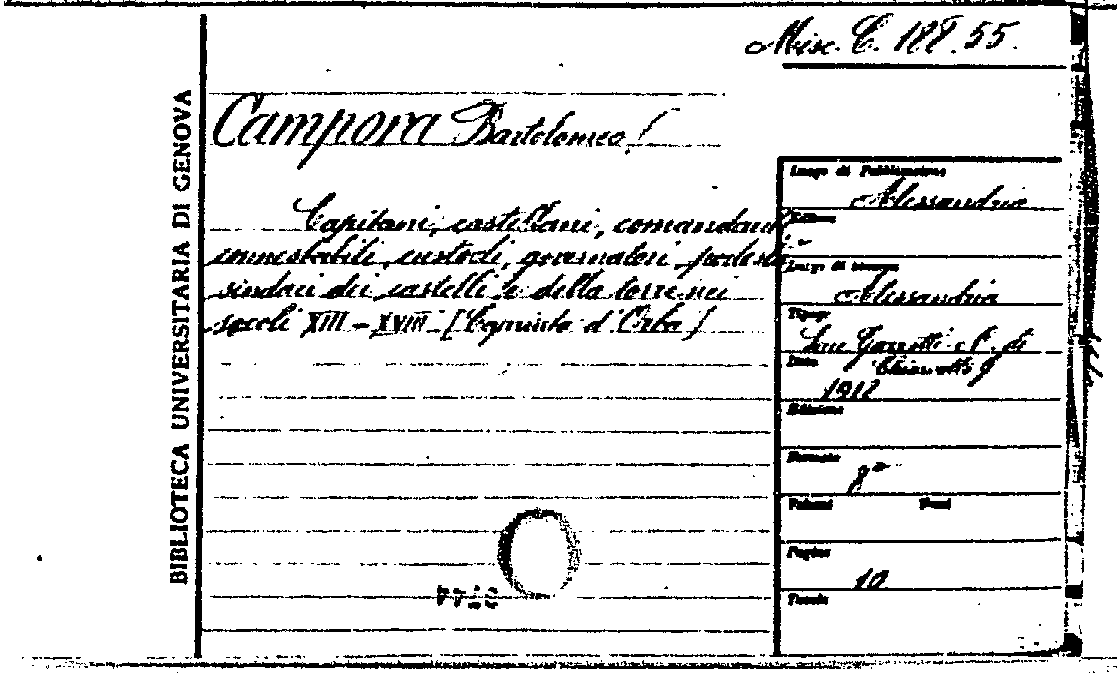 Misc. C. 188.55.
BIBLIOTECA UNIVERSITARIA DI GENOVA
Campora Bartolomeo
Capitani, castellani, comandanti
connestabili, custodi, governatori podestà
sindaci dei castelli e della torre nei
secoli XIII - XVIII [Capriata d'Orba]
Luogo di Pubblicazione
Alessandria
Editore
Luogo di stampa
Alessandria
Tipogr.
Succ. Gazzotti e C. di
Data
1912
Edizione
Formato
8°
Volumi
Pagine
10
Tavole